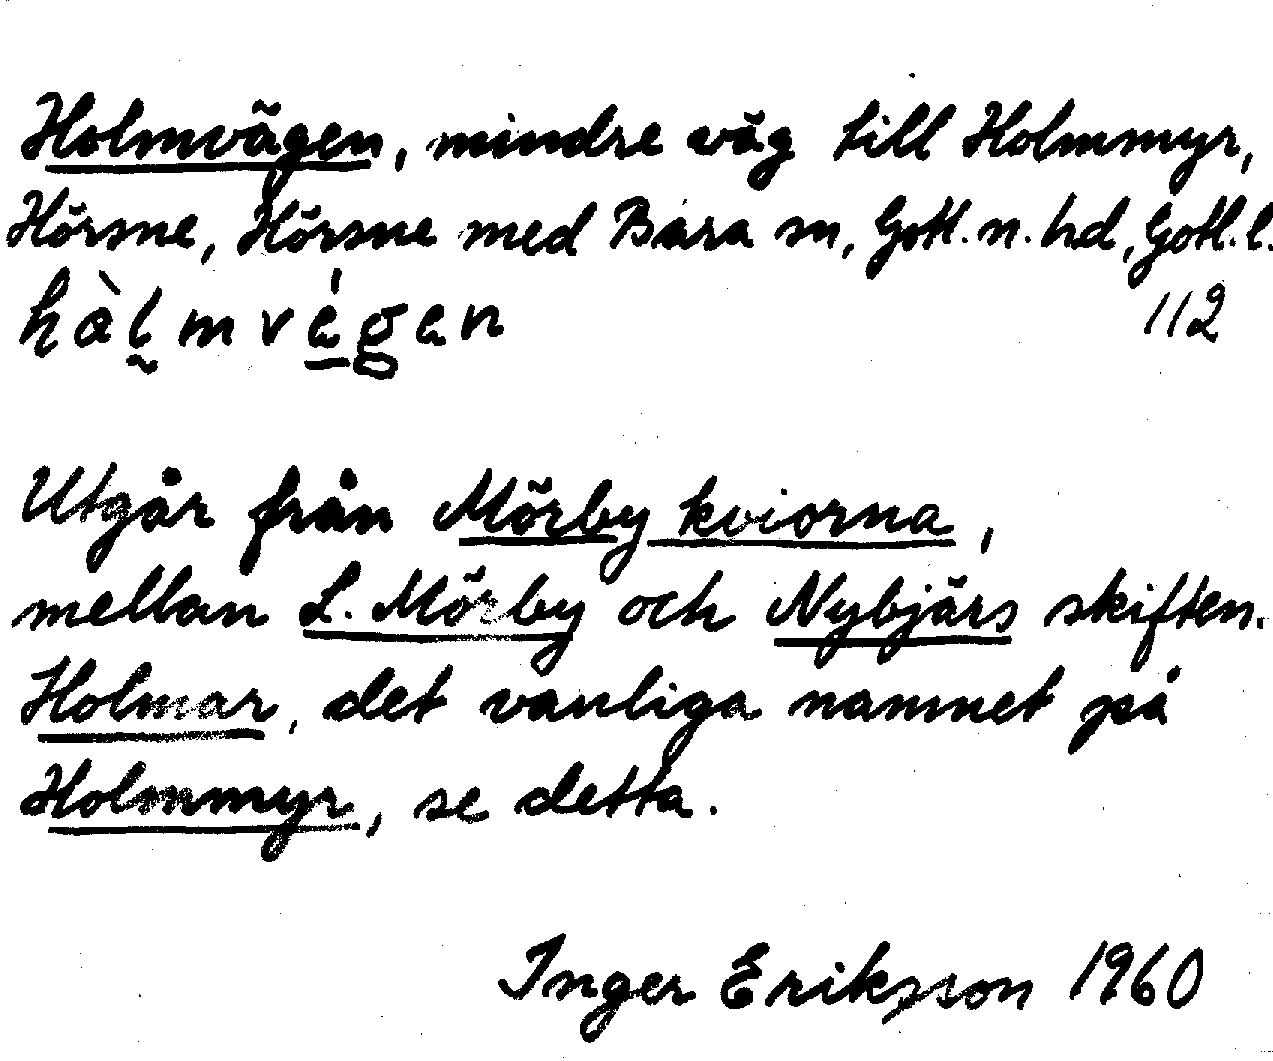 Holmvägen, mindre väg till Holmmyr,
Hörsne, Hörsne med Bara sn, Gotl. n. hd, Gotl. l.
hàl̰mvégen 112
Utgår från Mörby kviorna,
mellan L. Mörby och Nybjärs skiften.
Holmar, det vanliga namnet på
Holmmyr, se detta.
Inger Eriksson 1960